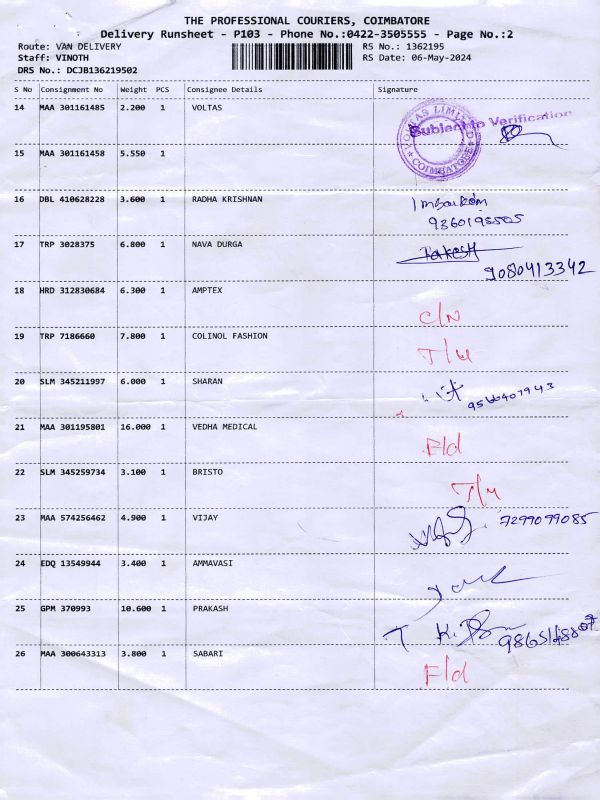 THE PROFESSIONAL COURIERS, COIMBATORE
Delivery Runsheet - P103 - Phone No.:0422-3505555 - Page No.:2
Route: VAN DELIVERY RS No.: 1362195
Staff: VINOTH RS Date: 06-May-2024
DRS No.: DCJB136219502
S No Consignment No Weight PCS Consignee Details Signature
14 MAA 301161485 2.200 1 VOLTAS
VOLTAS LIMITED COIMBATORE
Subject to Verification
15 MAA 301161458 5.550 1
16 DBL 410628228 3.600 1 RADHA KRISHNAN
17 TRP 3028375 6.800 1 NAVA DURGA Rakesh
9080413342
18 HRD 312830684 6.300 1 AMPTEX
C/N
19 TRP 7186660 7.800 1 COLINOL FASHION
T/M
20 SLM 345211997 6.000 1 SHARAN
21 MAA 301195801 16.000 1 VEDHA MEDICAL
F/d
22 SLM 345259734 3.100 1 BRISTO
T/M
23 MAA 574256462 4.900 1 VIJAY 7299099085
24 EDQ 13549944 3.400 1 AMMAVASI
25 GPM 370993 10.600 1 PRAKASH
26 MAA 300643313 3.800 1 SABARI
F/d